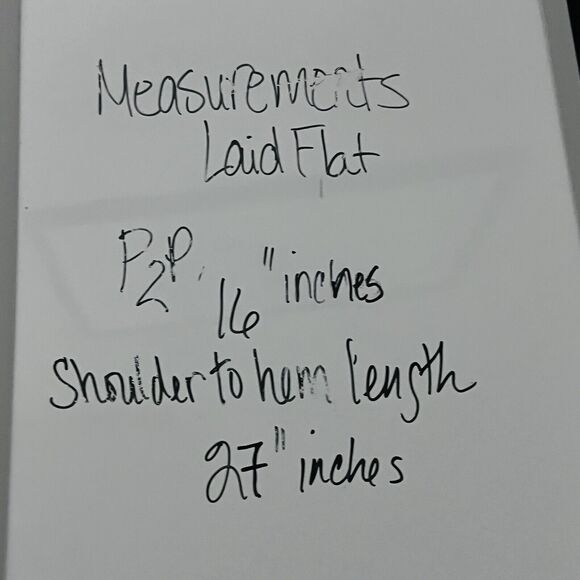 Measurements
Laid Flat
P2P.
16" inches
Shoulder to hem length
27" inches